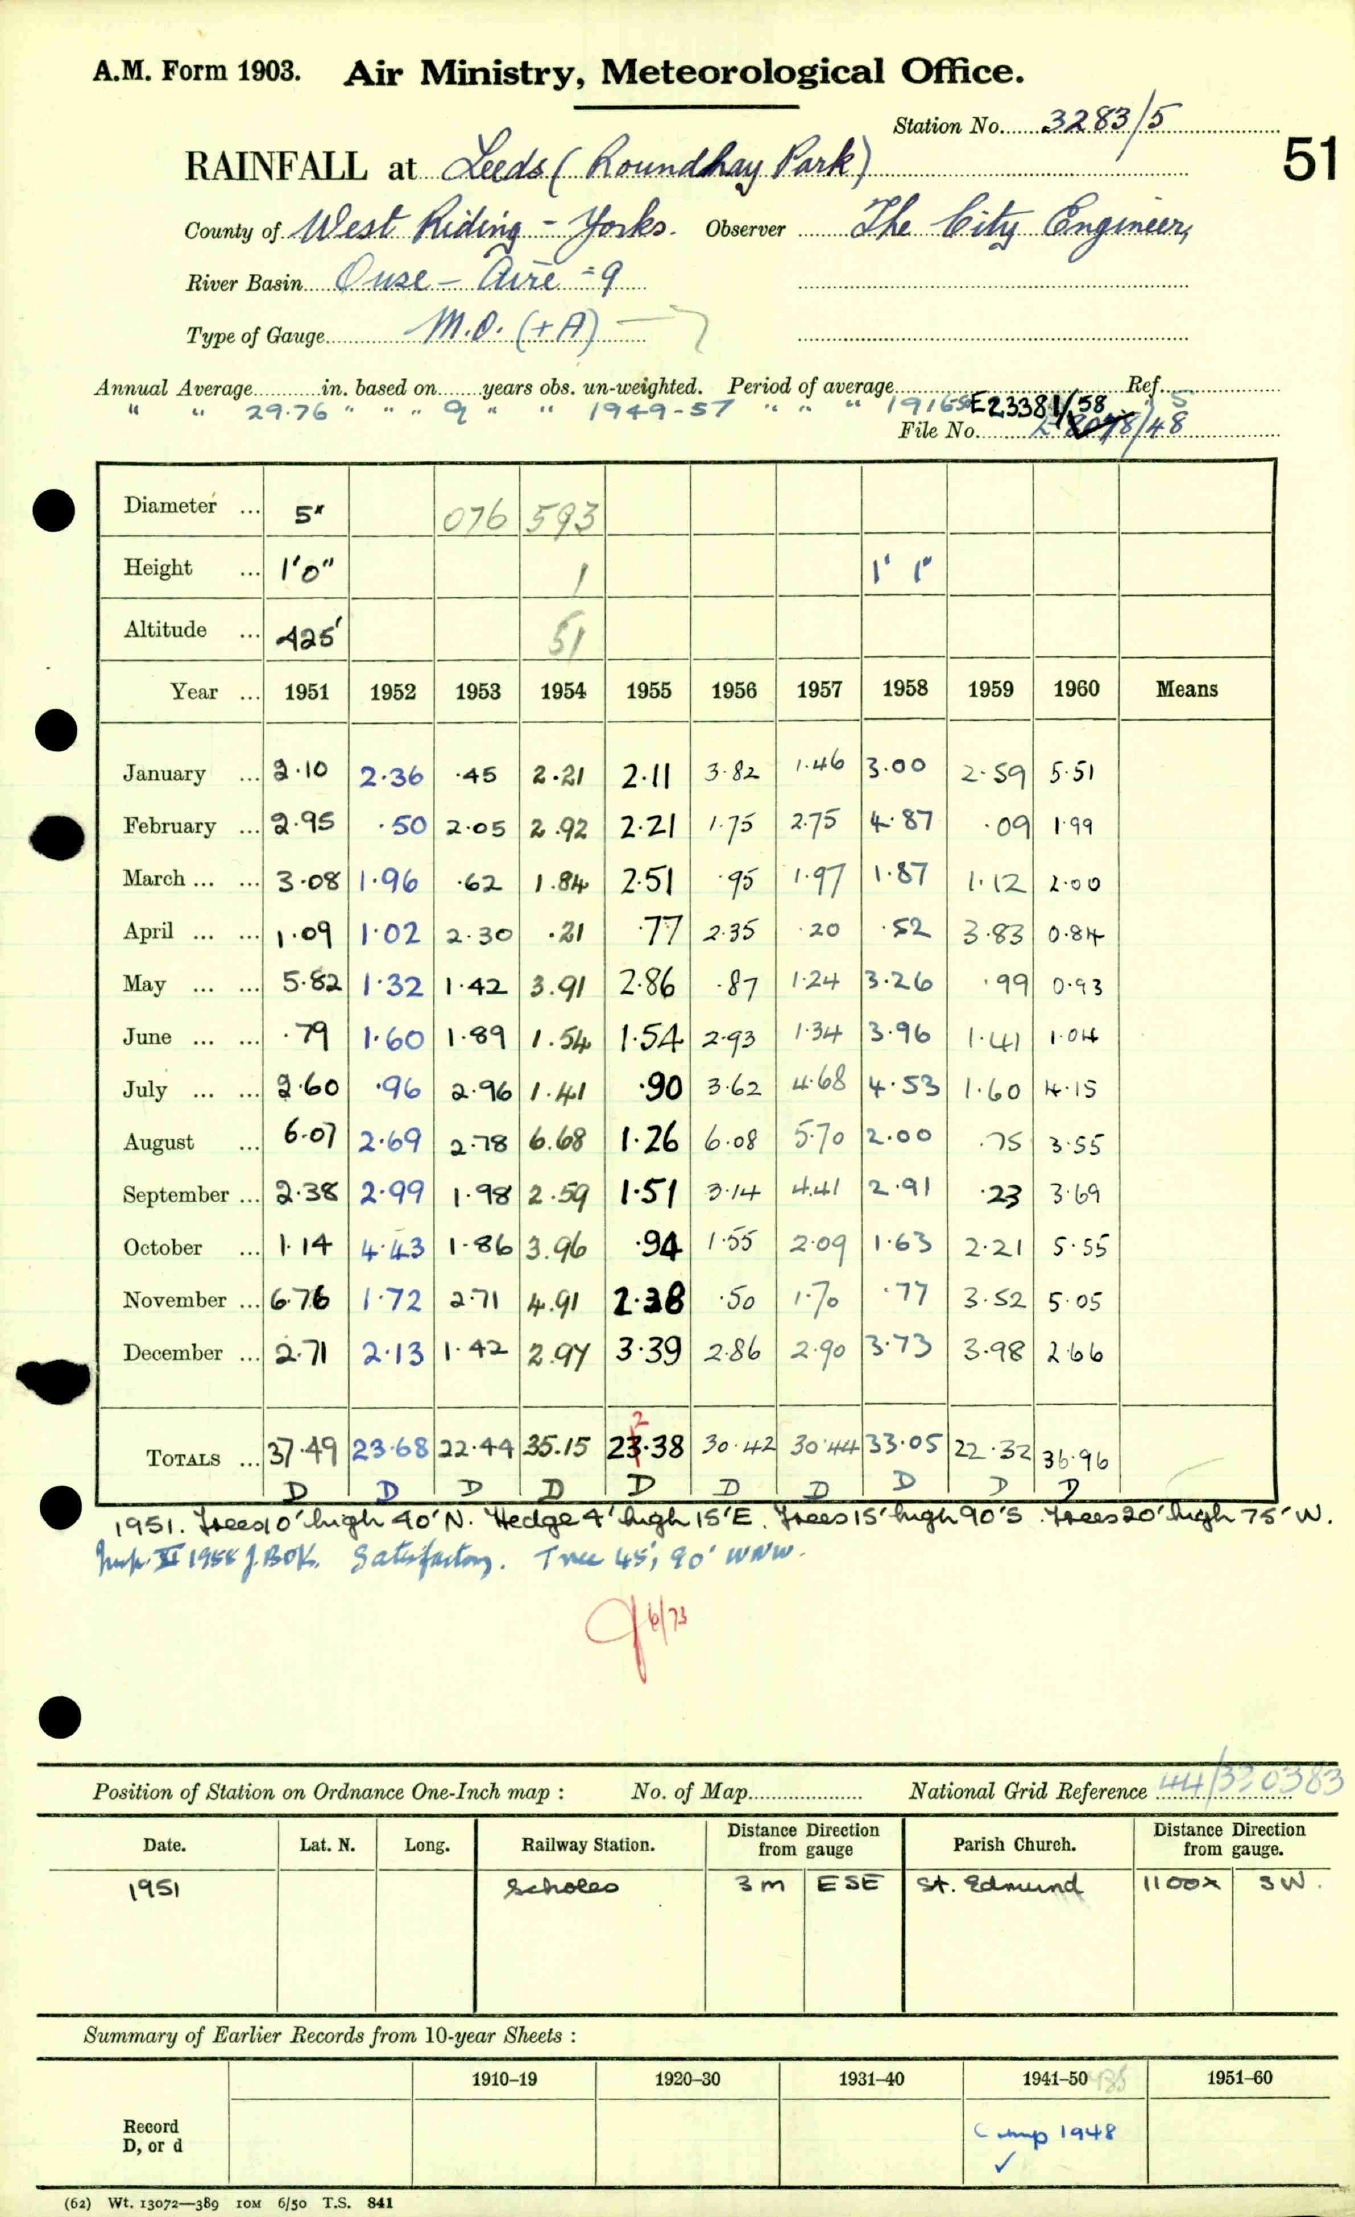 A.M. Form 1903. Air Ministry, Meteorological Office.
Station No. 3283/5
51
RAINFALL at Leeds (Roundhay Park)
County of West Riding - Yorks. Observer The City Engineer,
River Basin Ouse - Aire = 9
Type of Gauge M.O. (+A)
Annual Average in. based on years obs. un-weighted. Period of average Ref.
" " 29.76 " " " 9 " " 1949-57 " " " 1916-50 " 5
E23381/58
File No. 8078/48
Diameter ... 5" 076 593
Height ... 1'0" 1 1' 1"
Altitude ... 425' 51
Year ... 1951 1952 1953 1954 1955 1956 1957 1958 1959 1960 Means
January ... 2.10 2.36 .45 2.21 2.11 3.82 1.46 3.00 2.59 5.51
February ... 2.95 .50 2.05 2.92 2.21 1.75 2.75 4.87 .09 1.99
March ... ... 3.08 1.96 .62 1.84 2.51 .95 1.97 1.87 1.12 2.00
April ... ... 1.09 1.02 2.30 .21 .77 2.35 .20 .52 3.83 0.84
May ... ... 5.82 1.32 1.42 3.91 2.86 .87 1.24 3.26 .99 0.93
June ... ... .79 1.60 1.89 1.54 1.54 2.93 1.34 3.96 1.41 1.04
July ... ... 2.60 .96 2.96 1.41 .90 3.62 4.68 4.53 1.60 4.15
August ... 6.07 2.69 2.78 6.68 1.26 6.08 5.70 2.00 .75 3.55
September ... 2.38 2.99 1.98 2.59 1.51 3.14 4.41 2.91 .23 3.69
October ... 1.14 4.43 1.86 3.96 .94 1.55 2.09 1.63 2.21 5.55
November ... 6.76 1.72 2.71 4.91 2.38 .50 1.70 .77 3.52 5.05
December ... 2.71 2.13 1.42 2.97 3.39 2.86 2.90 3.73 3.98 2.66
2
TOTALS ... 37.49 23.68 22.44 35.15 23.38 30.42 30.44 33.05 22.32 36.96
D D D D D D D D D D
1951. Trees 10' high 40' N. Hedge 4' high 15' E. Trees 15' high 90' S. Trees 20' high 75' W.
Insp. XI 1958 J.BOK. Satisfactory. Tree 45', 90' WNW.
6/73
Position of Station on Ordnance One-Inch map : No. of Map National Grid Reference 44/330383
Date. Lat. N. Long. Railway Station. Distance from Direction gauge Parish Church. Distance from Direction gauge.
1951 Scholes 3 m ESE St. Edmund 1100x SW.
Summary of Earlier Records from 10-year Sheets :
1910-19 1920-30 1931-40 1941-50 1951-60
Record
D, or d
Comp 1948
✓
(62) Wt. 13072—389 10M 6/50 T.S. 841